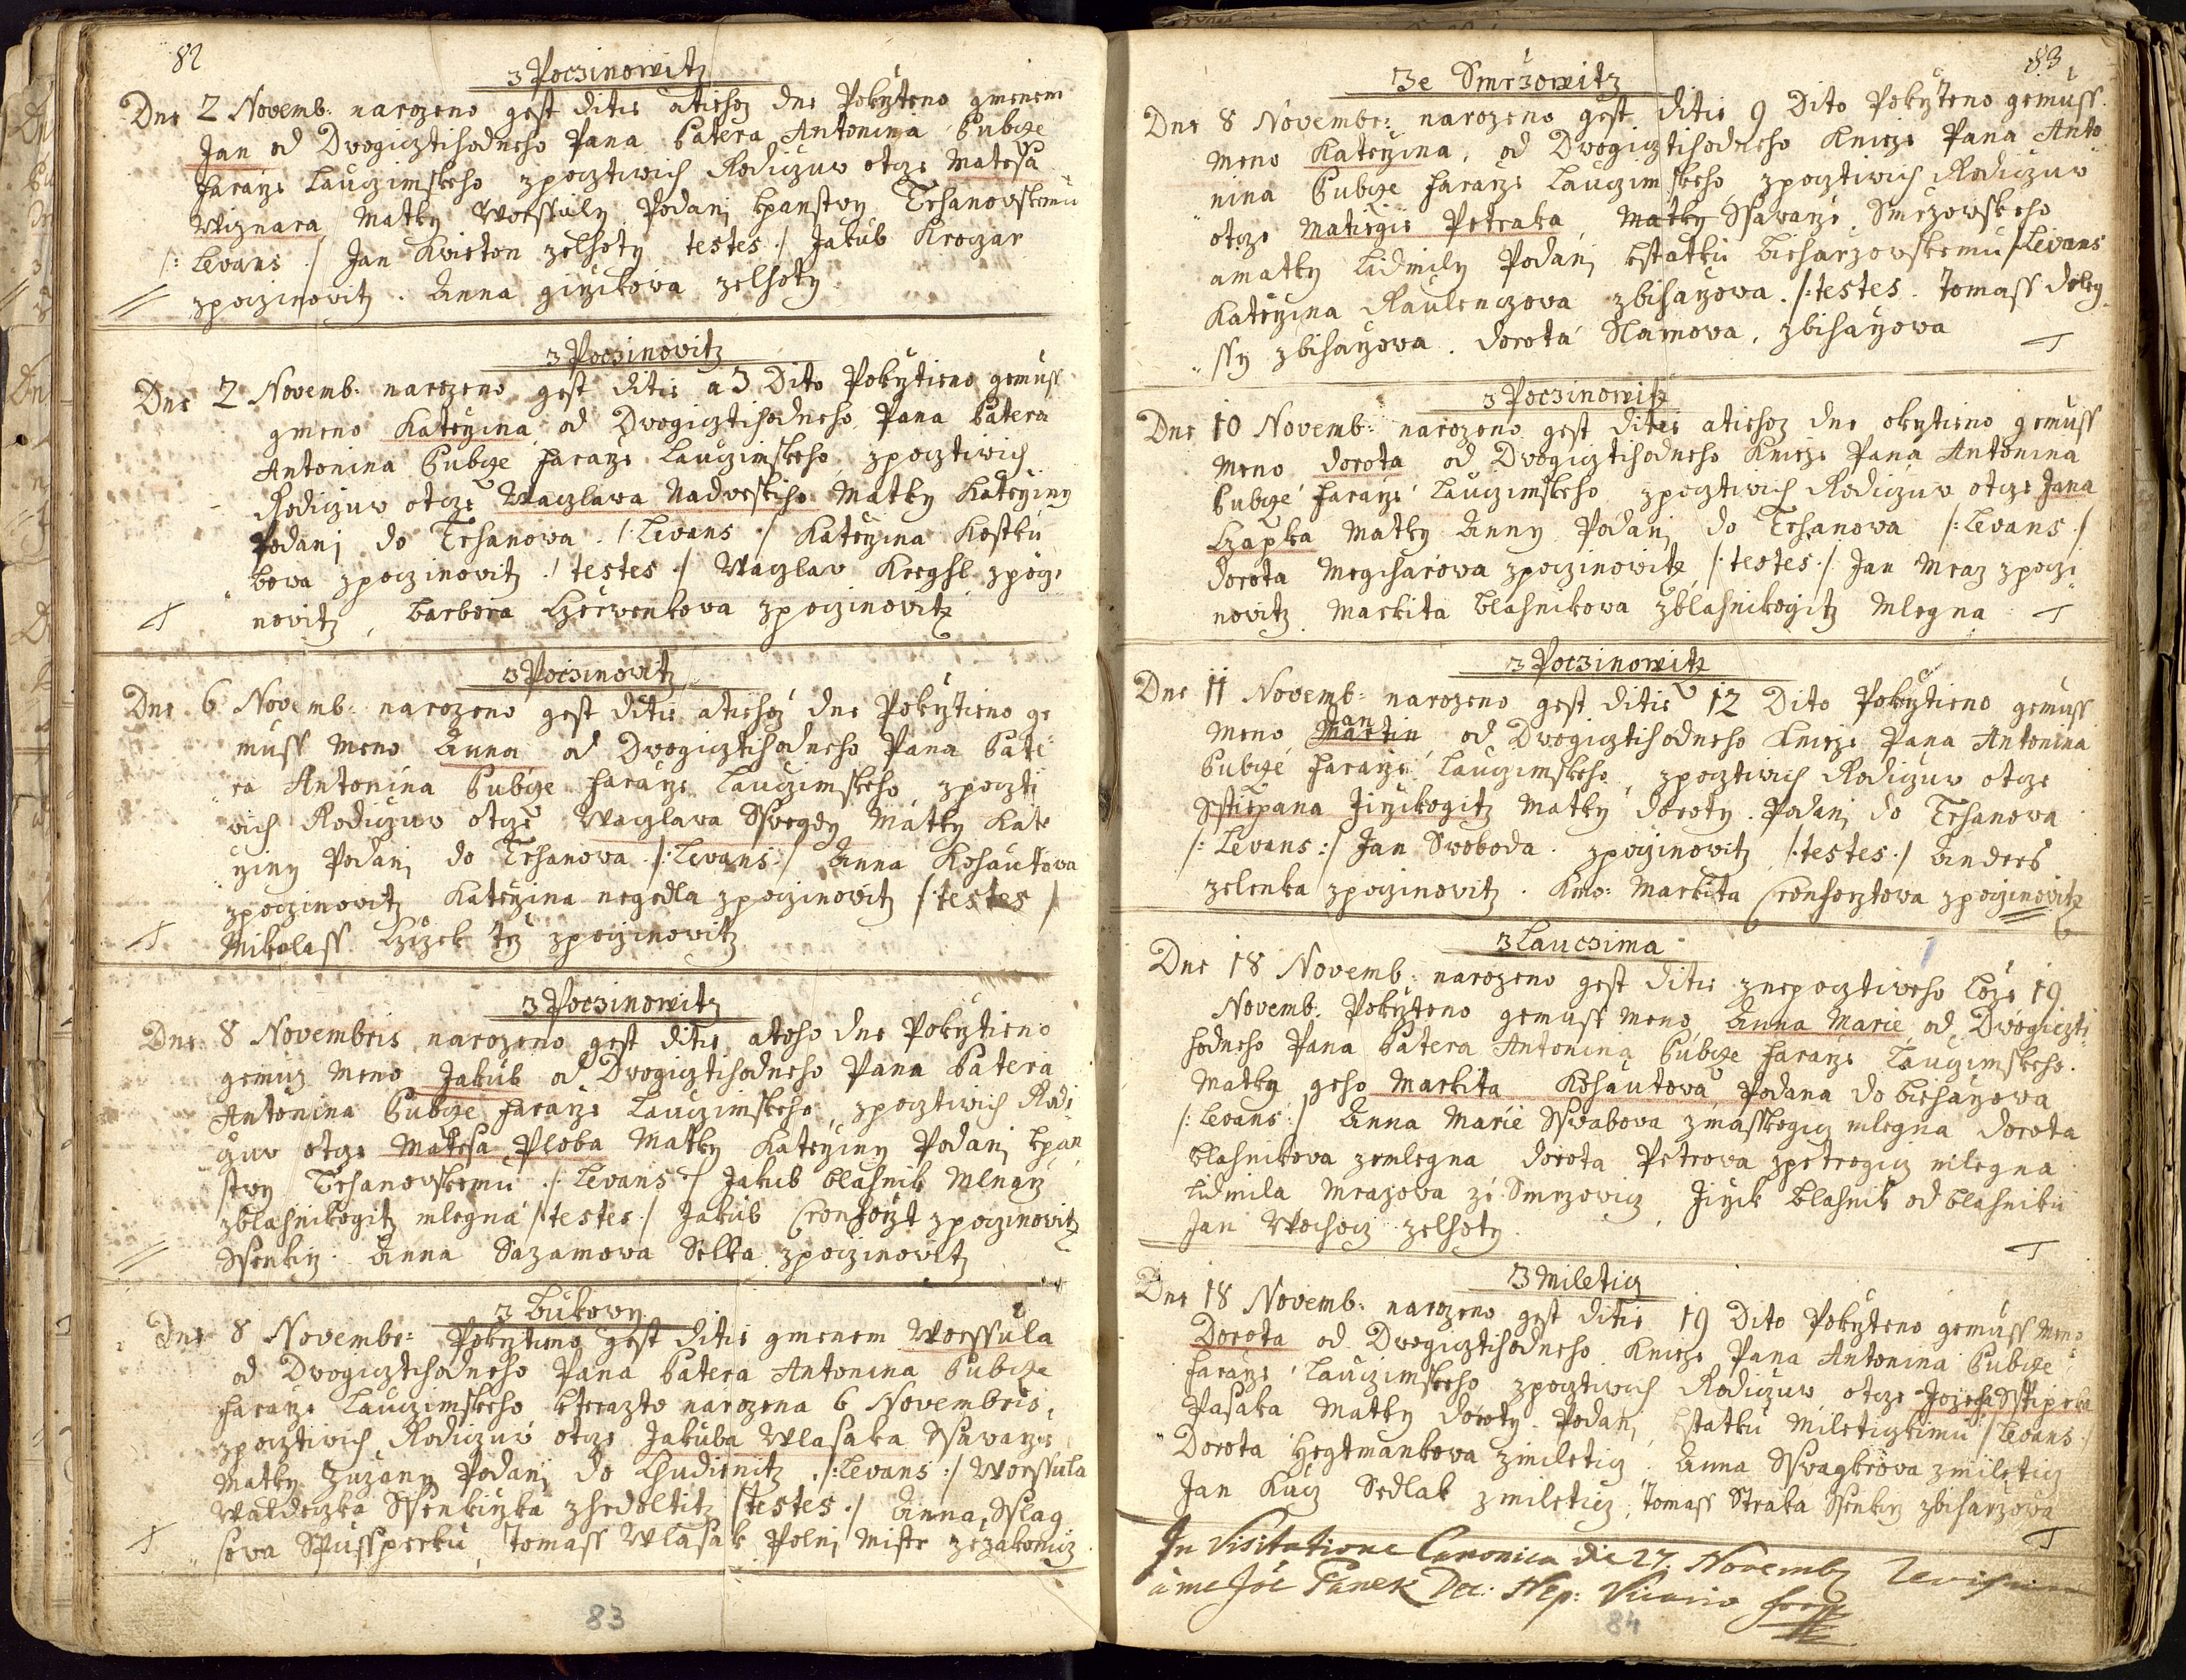 82
z Poczinowitz
Dne 2 Novemb: narozeno gest ditie atiehoz dne Pokrzteno gmenem
Jan od Dwogicztihodneho Pana Patera Antonina Bubcze
Fararze Lauczimskeho zpocztiwich Rodiczuw otcze Mategą
Wiznara Matky Worssuly Podanj kpanstwy Trhanowskemu
/: Levans :/ Jan Kvieton zelhoty testes :/ Jakub Kroczar
zpoczinovitz . Anna girzikowa zelhoty
z Poczinovitz
Dne 2 Novemb: narozeno gest ditie a 3 Dito Pokrztieno gemuss
gmeno Katerzina od Dwogicztihodneho Pana Patera
Antonina Bubcze Fararze Lauczimskeho zpocztiwich
Rodiczuw otcze Waczlawa Nadweskiho Matky Katerziny
Podanj do Trhanowa /: Levans :/ Katerzina Kostku
bowa zpoczinovitz / testes :/ Waczlav Kreghl zpoczi
novitz , Barbora Czerwenkowa zpoczinovitz
z Poczinovitz
Dne 6 Novemb: narozeno gest ditie atiehoz dne Pokrztieno ge
muss meno Anna od Dwogicztihodneho Pana Pate
ra Antonina Bubcze Fararze Lauczimskeho zpoczti
wich Rodiczuw otcze Waczlawa Sswegdy Matky Kate
rziny Podanj do Trhanowa /: Levans :/ Anna Kohautowa
zpoczinovitz Katerzina negedla zpoczinovitz / testes /
Mikolass Czizek tez zpoczinovitz
z Poczinowitz
Dne 8 Novembris narozeno gest ditie atoho dne Pokrztieno
gemuz meno Jakub od Dwogicztihodneho Pana Patera
Antonina Bubcze Fararze Lauczimskeho , zpocztiwich Rodi
czuw otcze Matesa Ploba Matky Katerziny Podanj kpan
stwy Trhanovskemu /: Levans :/ Jakub blahnik Mlnarz
zblahnikogitz mlegna / testes :/ Jakub Cronforzt zpoczinovitz
Ssenkirz Anna Sazamowa Selka zpoczinovitz
z Bukowy
Dne 8 Novembr: Pokrztieno gest ditie gmenem Worssula
od Dwogicztihodneho Pana Patera Antonina Bubcze
Fararze Lauczimskeho kterazto narozena 6 Novembris,
zpocztiwich Rodiczuw otcze Jakuba Wlasaka Ssawarze
Matky Zuzany Podanj do Chudienitz /: Levans :/ Worssula
Waldeczka Ssenkirzka zhedoltitz / testes :/ Anna Sslag
sowa Spussperku , Tomass Wlasak Polni Mistr zezakomicz
83
83
Ze Smrzowitz
Dne 8 Novembr: narozeno gest ditie 9 Dito Pokrzteno gemuss
meno Katerzina , od Dwogicztihodneho Knieze Pana Anto
nina Bubcze Fararze Lauczimskeho zpocztiwich Rodiczuw
otcze Matiegie Petraka , Matky Ssavarze Smrzowskeho
amatky Lidmily Podanj kstatku Bieharzowskemu /: Levans
Katerzina Raulenczova zbiharzowa . /: testes . Tomass doleg
ssy zbiharzowa . dorota Slamowa , zbiharzowa
z Poczinowitz
Dne 10 Novemb: narozeno gest ditie atiehoz dne okrztieno gemuss
meno dorota od Dwogicztihodneho Knieze Pana Antonina
Bubcze Fararze Lauczimskeho zpocztiwich Rodiczuw otcze Jana
Czapka Matky Anny Podanj do Trhanowa /: Levans :/
dorota Megcharowa zpoczinowitz /: testes :/ Jan Mraz zpoczi
novitz Markita blahnikowa zblahnikogitz Mlegna
z Poczinowitz
Dne 11 Novemb: narozeno gest ditie 12 Dito Pokrztieno gemuss
Jan
meno Martin od Dwogicztihodneho Knieze Pana Antonina
Bubcze Fararze Lauczimskeho , zpocztiwich Rodiczuw otcze
Sstiepana Jirzikogitz Matky doroty . Podanj do Trhanowa
/: Levans :/ Jan Swoboda . zpoczinovitz /: testes :/ Andres
zelenka zpoczinovitz . Kmo: Markita Cronforztowa zpoczinovitz
z Lauczima
Dne 18 Novemb: narozeno gest ditie znepocztiveho Loze 19
Novemb: Pokrzteno gemuss meno Anna Marie od Dwogiczti
hodneho Pana Patera Antonina Bubcze Fararze Lauczimskeho.
Matky geho Markita Kohautowa Podana do bieharzowa
/: Levans :/ Anna Marie Sswabova zmasskogicz mlegna dorota
blahnikova zemlegna dorota Petrowa zpetrogicz mlegna
Lidmila Mrazowa ze Smrzowicz , Jirzik blahnik od blahniku
Jan Wochocz zelhoty .
z Mileticz
Dne 18 Novemb: narozeno gest ditie 19 Dito Pokrzteno gemuss meno
Dorota od Dwogicztihodneho Knieze Pana Antonina Bubcze
Fararze Lauczimskeho zpocztiwich Rodiczuw otcze Jozefa Sstiperka
Pasaka Matky doroty . Podanj kstatku Mileticzkimu / Levans :/
Dorota Hegtmankowa zmileticz . Anna Sswagkrowa zmileticz
Jan Kucz Sedlak zmileticz , Tomass Straka Ssenkirz zbiharzowa
In Visitatione Canonica die 27. Novemb revisum
à me Joe Panek Dec: Nep: Vicario
84